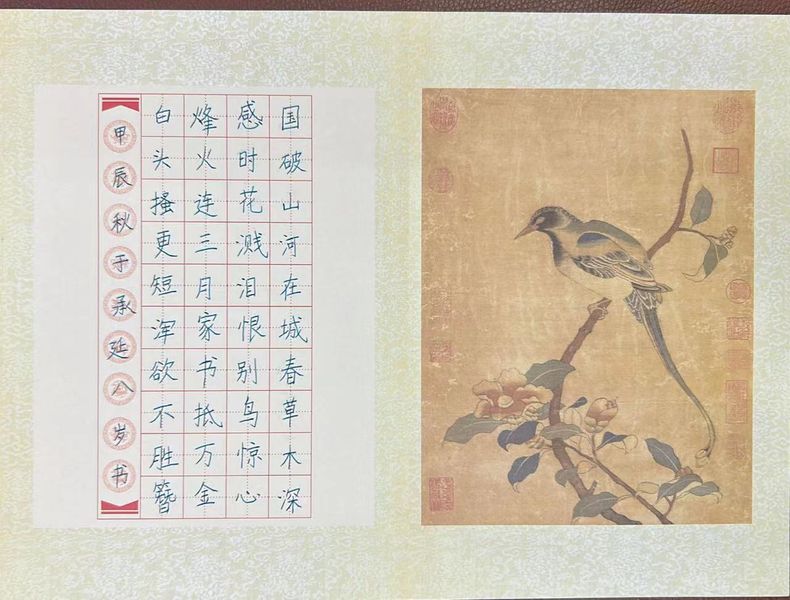 国破山河在城春草木深
感时花溅泪恨别鸟惊心
烽火连三月家书抵万金
白头搔更短浑欲不胜簪
甲辰秋于承延八岁书